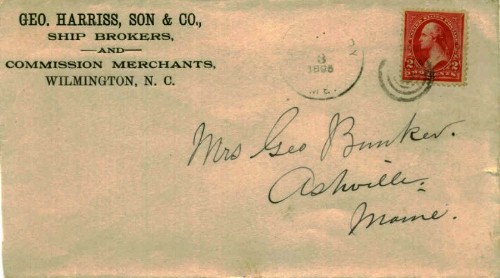 GEO. HARRISS, SON & CO.,
SHIP BROKERS,
—AND—
COMMISSION MERCHANTS,
WILMINGTON, N. C.
3
1895
2
2
Mrs Geo Bunker.
Ashville.
Maine.